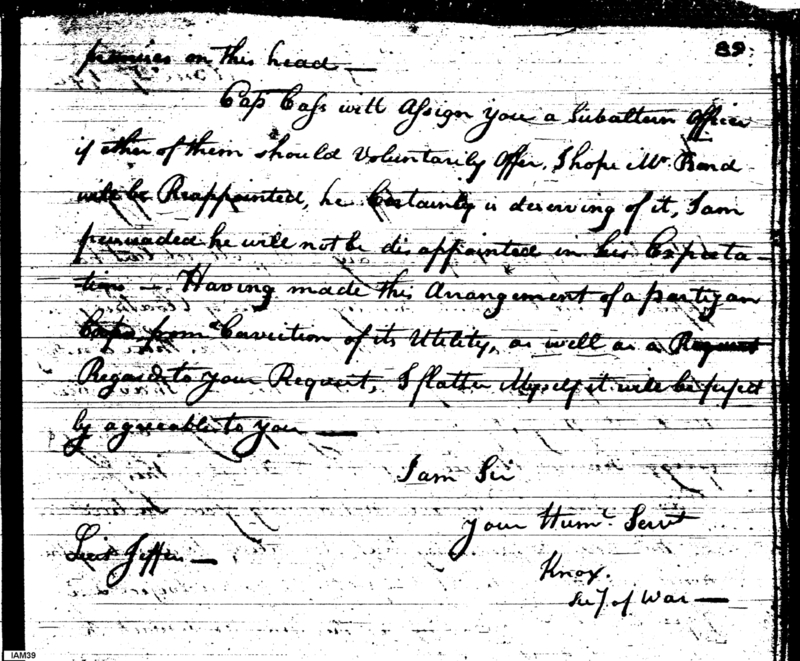 89.
premises on this head —
Cap Cass will Assign you a Subaltern Officer
if either of them should Voluntarily Offer. I hope Mr. Bond
will be Reappointed, he Certainly is deserving of it, I am
persuaded he will not be disappointed in his Expecta-
tions — Having made this Arrangement of a partizan
Corps, from a Conviction of its Utility, as well as a
Regard to your Request, I flatter Myself it will be perfect
ly agreeable to you —
I am Sir
your Huml. Servt
Knox.
Secy of War —
Lieut Jeffers —
IAM39